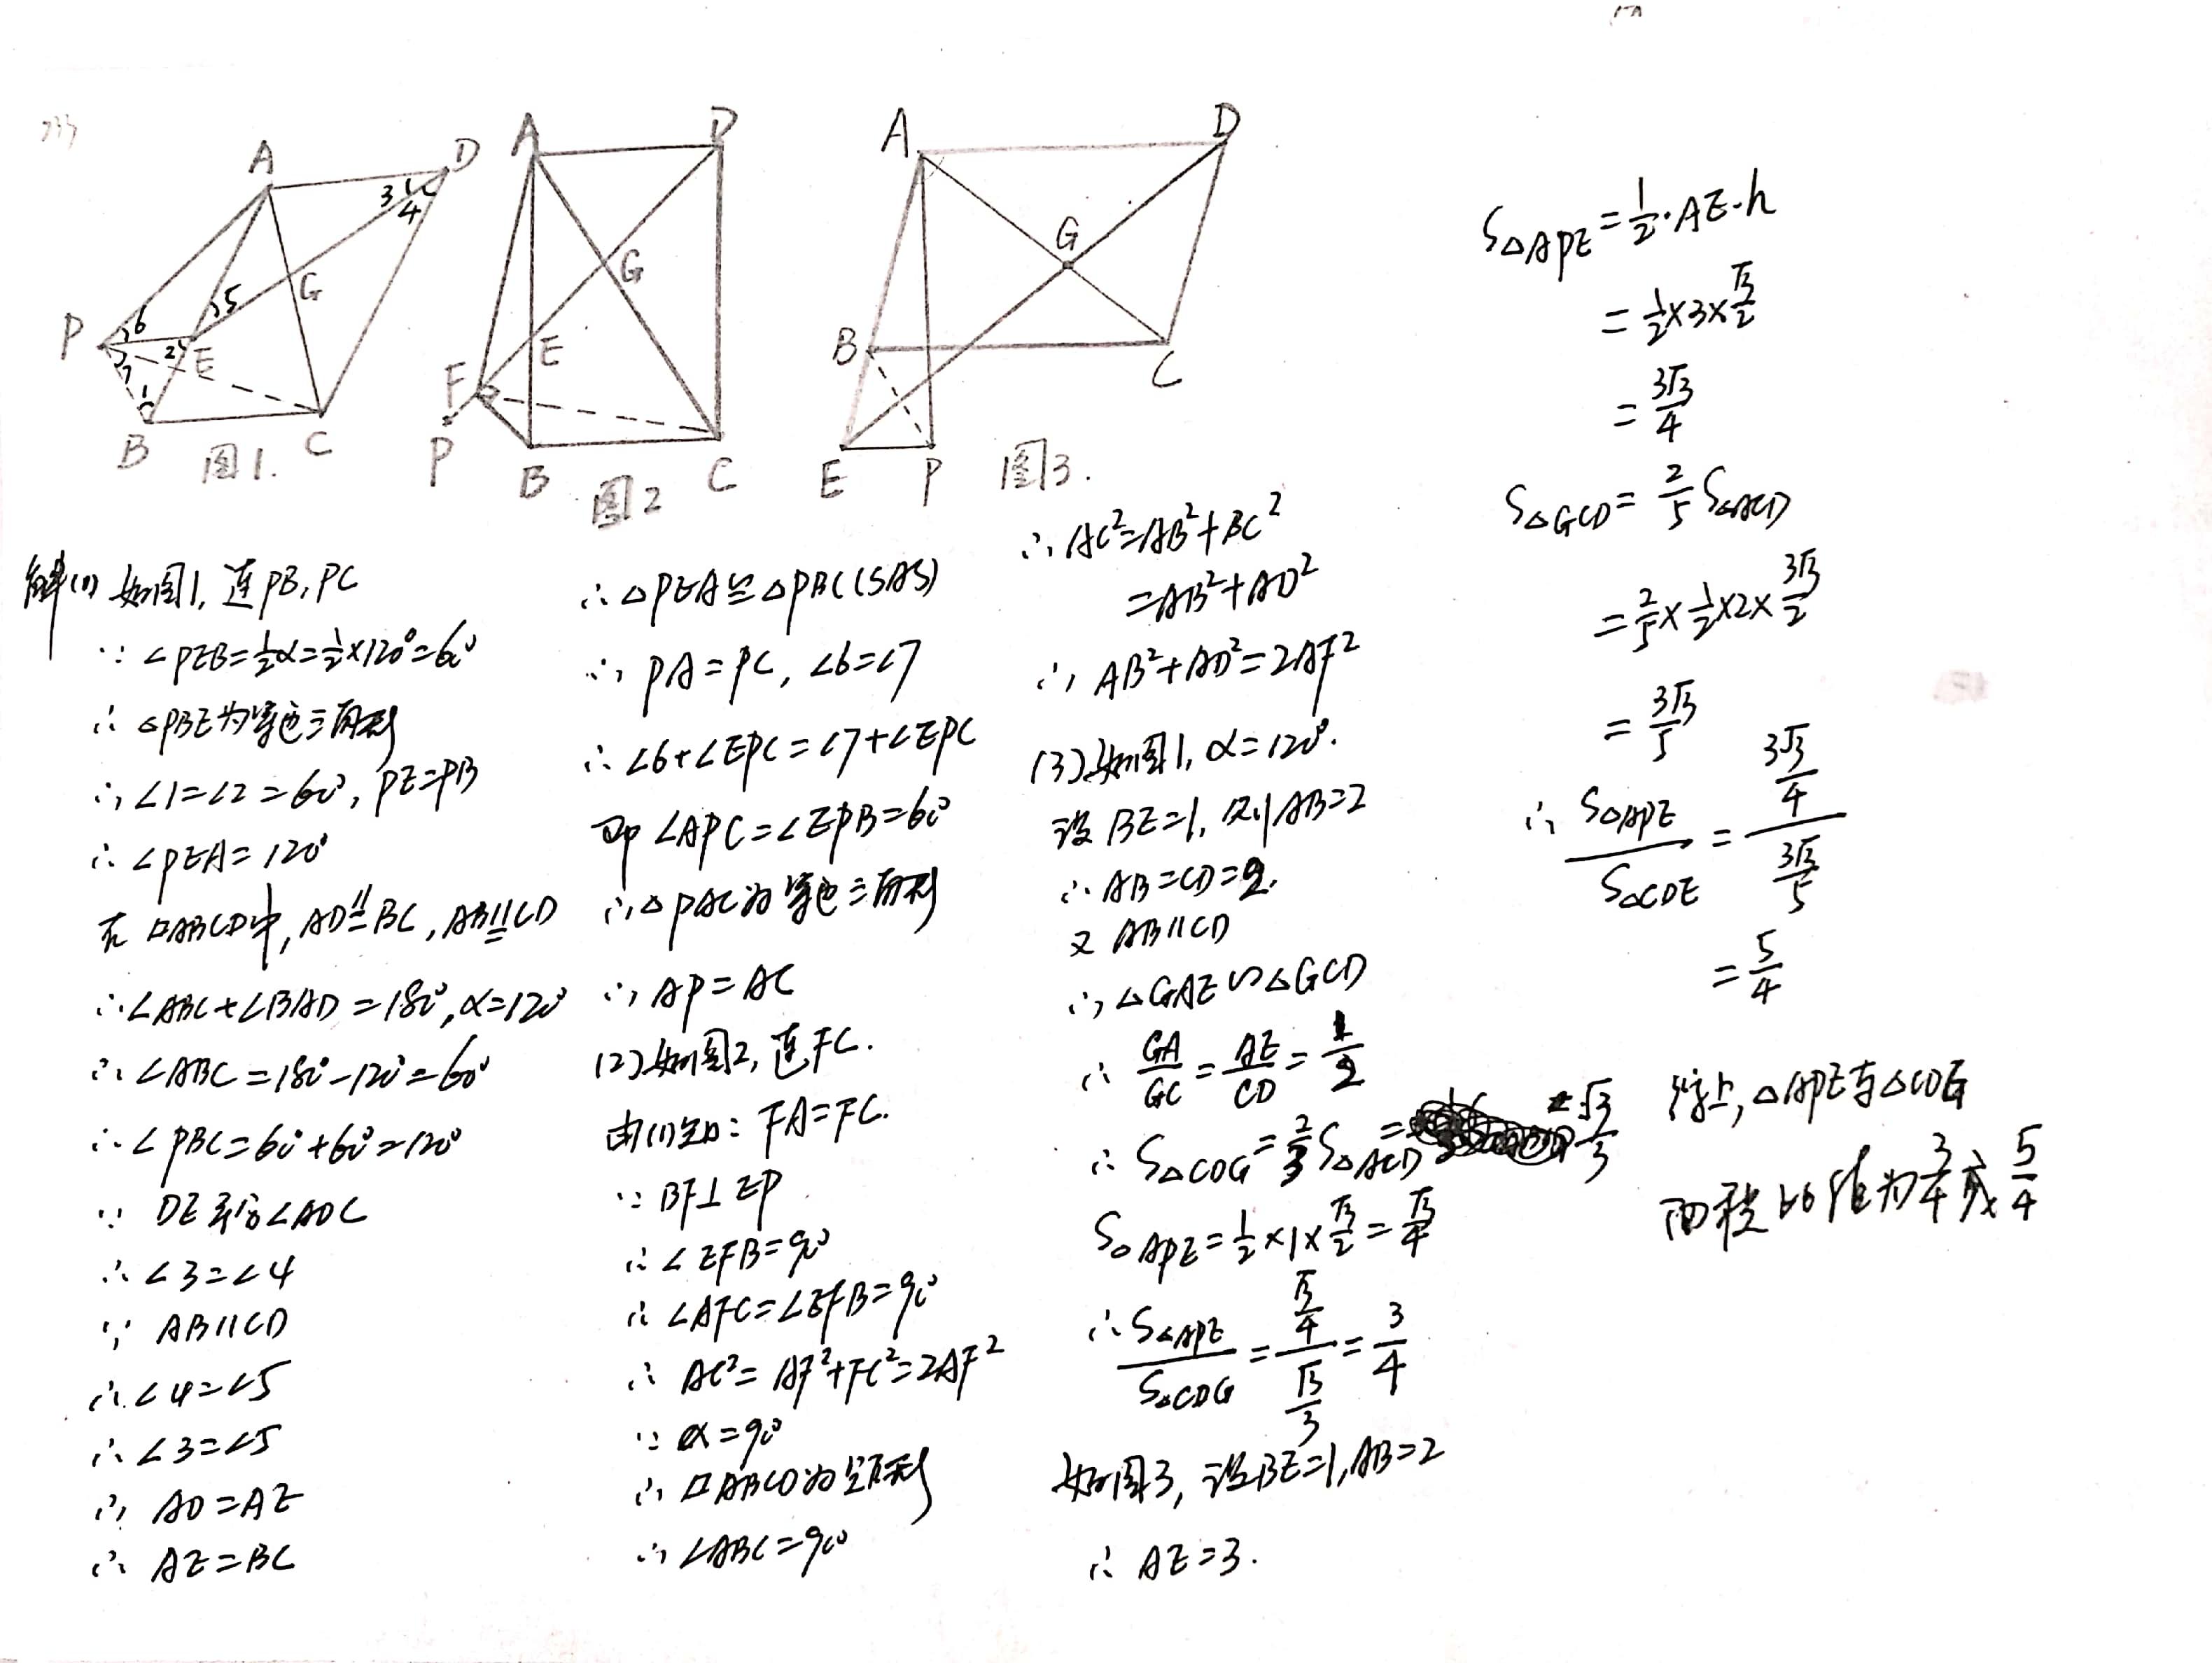 A
D
3
4
G
5
6
P
2
E
7
1
B
C
图1.
A
D
G
E
F
P
B
C
图2
A
D
G
B
C
E
P
图3.
解(1) 如图1, 连PB, PC
∵ ∠PEB=½α=½×120°=60°
∴ △PBE为等边三角形
∴ ∠1=∠2=60°, PE=PB
∴ ∠PEA=120°
在▱ABCD中, AD∥=BC, AB∥=CD
∴∠ABC+∠BAD=180°, α=120°
∴ ∠ABC=180°-120°=60°
∴ ∠PBC=60°+60°=120°
∵ DE平分∠ADC
∴ ∠3=∠4
∵ AB∥CD
∴ ∠4=∠5
∴ ∠3=∠5
∴ AD=AE
∴ AE=BC
∴ △PEA≌△PBC(SAS)
∴ PA=PC, ∠6=∠7
∴ ∠6+∠EPC=∠7+∠EPC
即 ∠APC=∠EPB=60°
∴△PAC为等边三角形
∴ AP=AC
(2)如图2, 连FC.
由(1)知: FA=FC.
∵ BF⊥EP
∴ ∠EFB=90°
∴ ∠AFC=∠EFB=90°
∴ AC²=AF²+FC²=2AF²
∵ α=90°
∴ ▱ABCD为矩形
∴ ∠ABC=90°
∴ AC²=AB²+BC²
=AB²+AD²
∴ AB²+AD²=2AF²
(3)如图1, α=120°.
设BE=1, 则AB=2
∴ AB=CD=2.
又 AB∥CD
∴ △GAE∽△GCD
∴ GA/GC=AE/CD=1/2
∴ S△CDG=2/3S△ACD= =√3/3
S△APE=½×1×√3/2=√3/4
∴ S△APE/S△CDG=(√3/4)/(√3/3)=3/4
如图3, 设BE=1, AB=2
∴ AE=3.
S△APE=½·AE·h
=½×3×√3/2
=3√3/4
S△GCD=2/5S△ACD
=2/5×½×2×3√3/2
=3√3/5
∴ S△APE/S△CDE=(3√3/4)/(3√3/5)
=5/4
综上, △APE与△CDG
面积比值为3/4或5/4